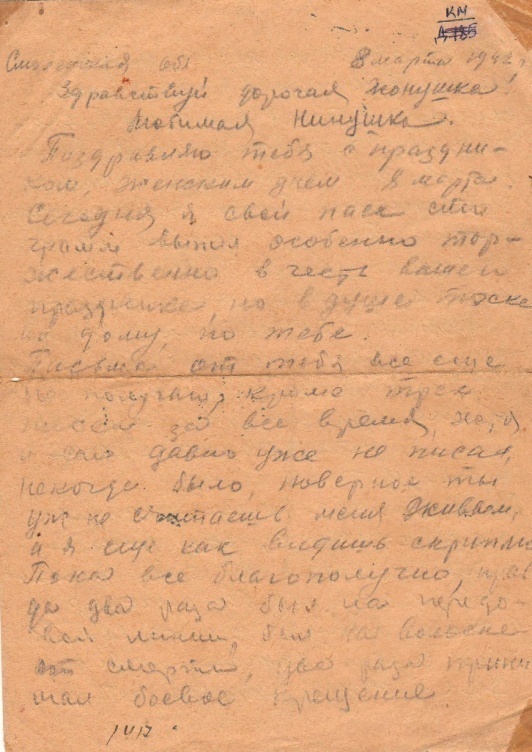 КМ
Смоленская обл 8 марта 1942 г
Здравствуй дорогая Жонушка!
Любимая Нинушка.
Паздравляю тебя с праздни-
ком, женским днем 8 марта.
Сегодня я свой паек сто
грамм выпил особенно тор-
жественно в честь вашего
праздника, но в душе тоска
по дому, по тебе.
Письма от тебя все еще
не получил, кроме трех
писем за все время, но, я
и сам давно уже не писал,
некогда было, наверное ты
уж не считаешь меня живым,
а я еще как видишь скриплю
Пока все благополучно, прав
да два раза был на передо-
вой линии, был на волоске
от смерти, два раза прини
мал боевое крещение